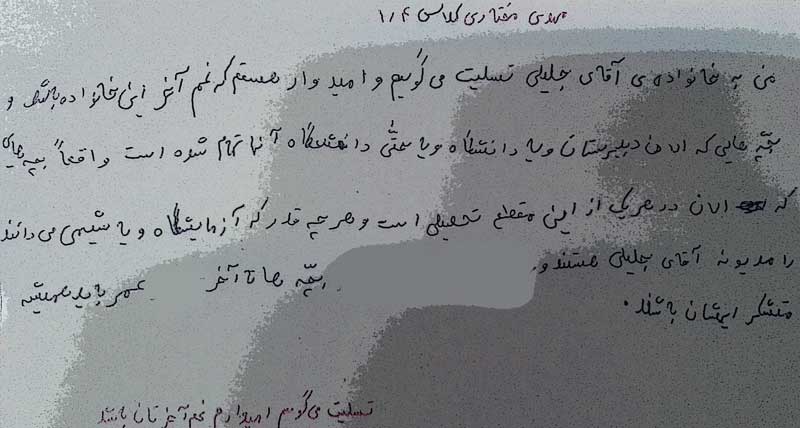 مهدی مختاری کلاس ۱٫۴
من به خانواده ی آقای جلیلی تسلیت می گویم و امید وار هستم که غم آخر این خانواده باشد و
بچّه هایی که الان دبیرستان ویا دانشگاه ویا حتّی دانشگاه آنها تمام شده است واقعاً بچه های
که الان در هریک از این مقطع تحصیلی است و هر چه قدر که آزمایشگاه و یا شیمی می دانند
را مدیونه آقای جلیلی هستند و بچّه ها تا آخر عمر باید همیشه
متشکر ایشان باشند.
تسلیت می گویم امیدوارم غم آخرتان باشد